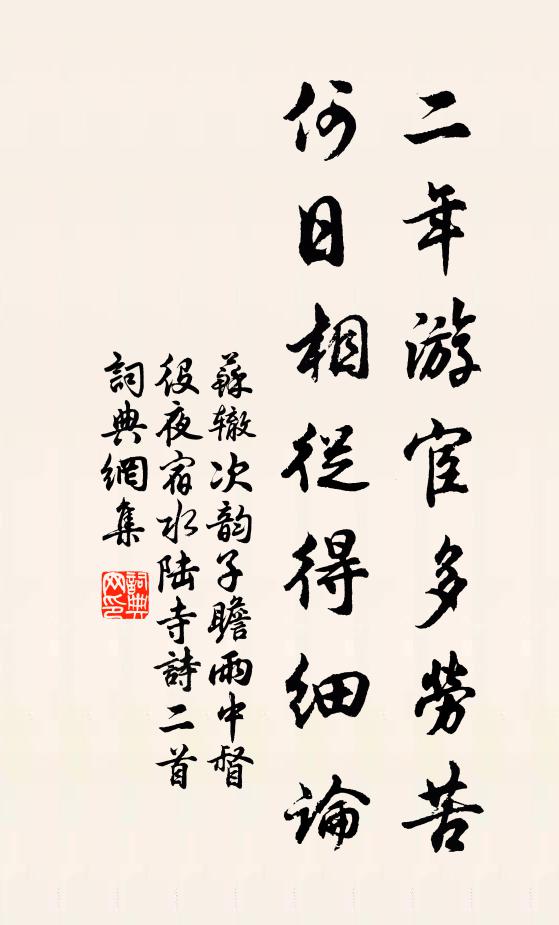 二年游宦多勞苦
何日相從得細論
蘇辙次韵子瞻雨中督
役夜宿水陆寺詩二首
詞典網集
詞典网印